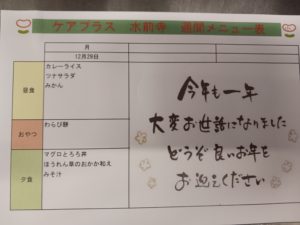 ケアプラス 水前寺 週間メニュー表
月
12月29日
昼食
カレーライス
ツナサラダ
みかん
おやつ
わらび餅
夕食
マグロとろろ丼
ほうれん草のおかか和え
みそ汁
今年も一年
大変お世話になりました
どうぞ良いお年を
お迎えください